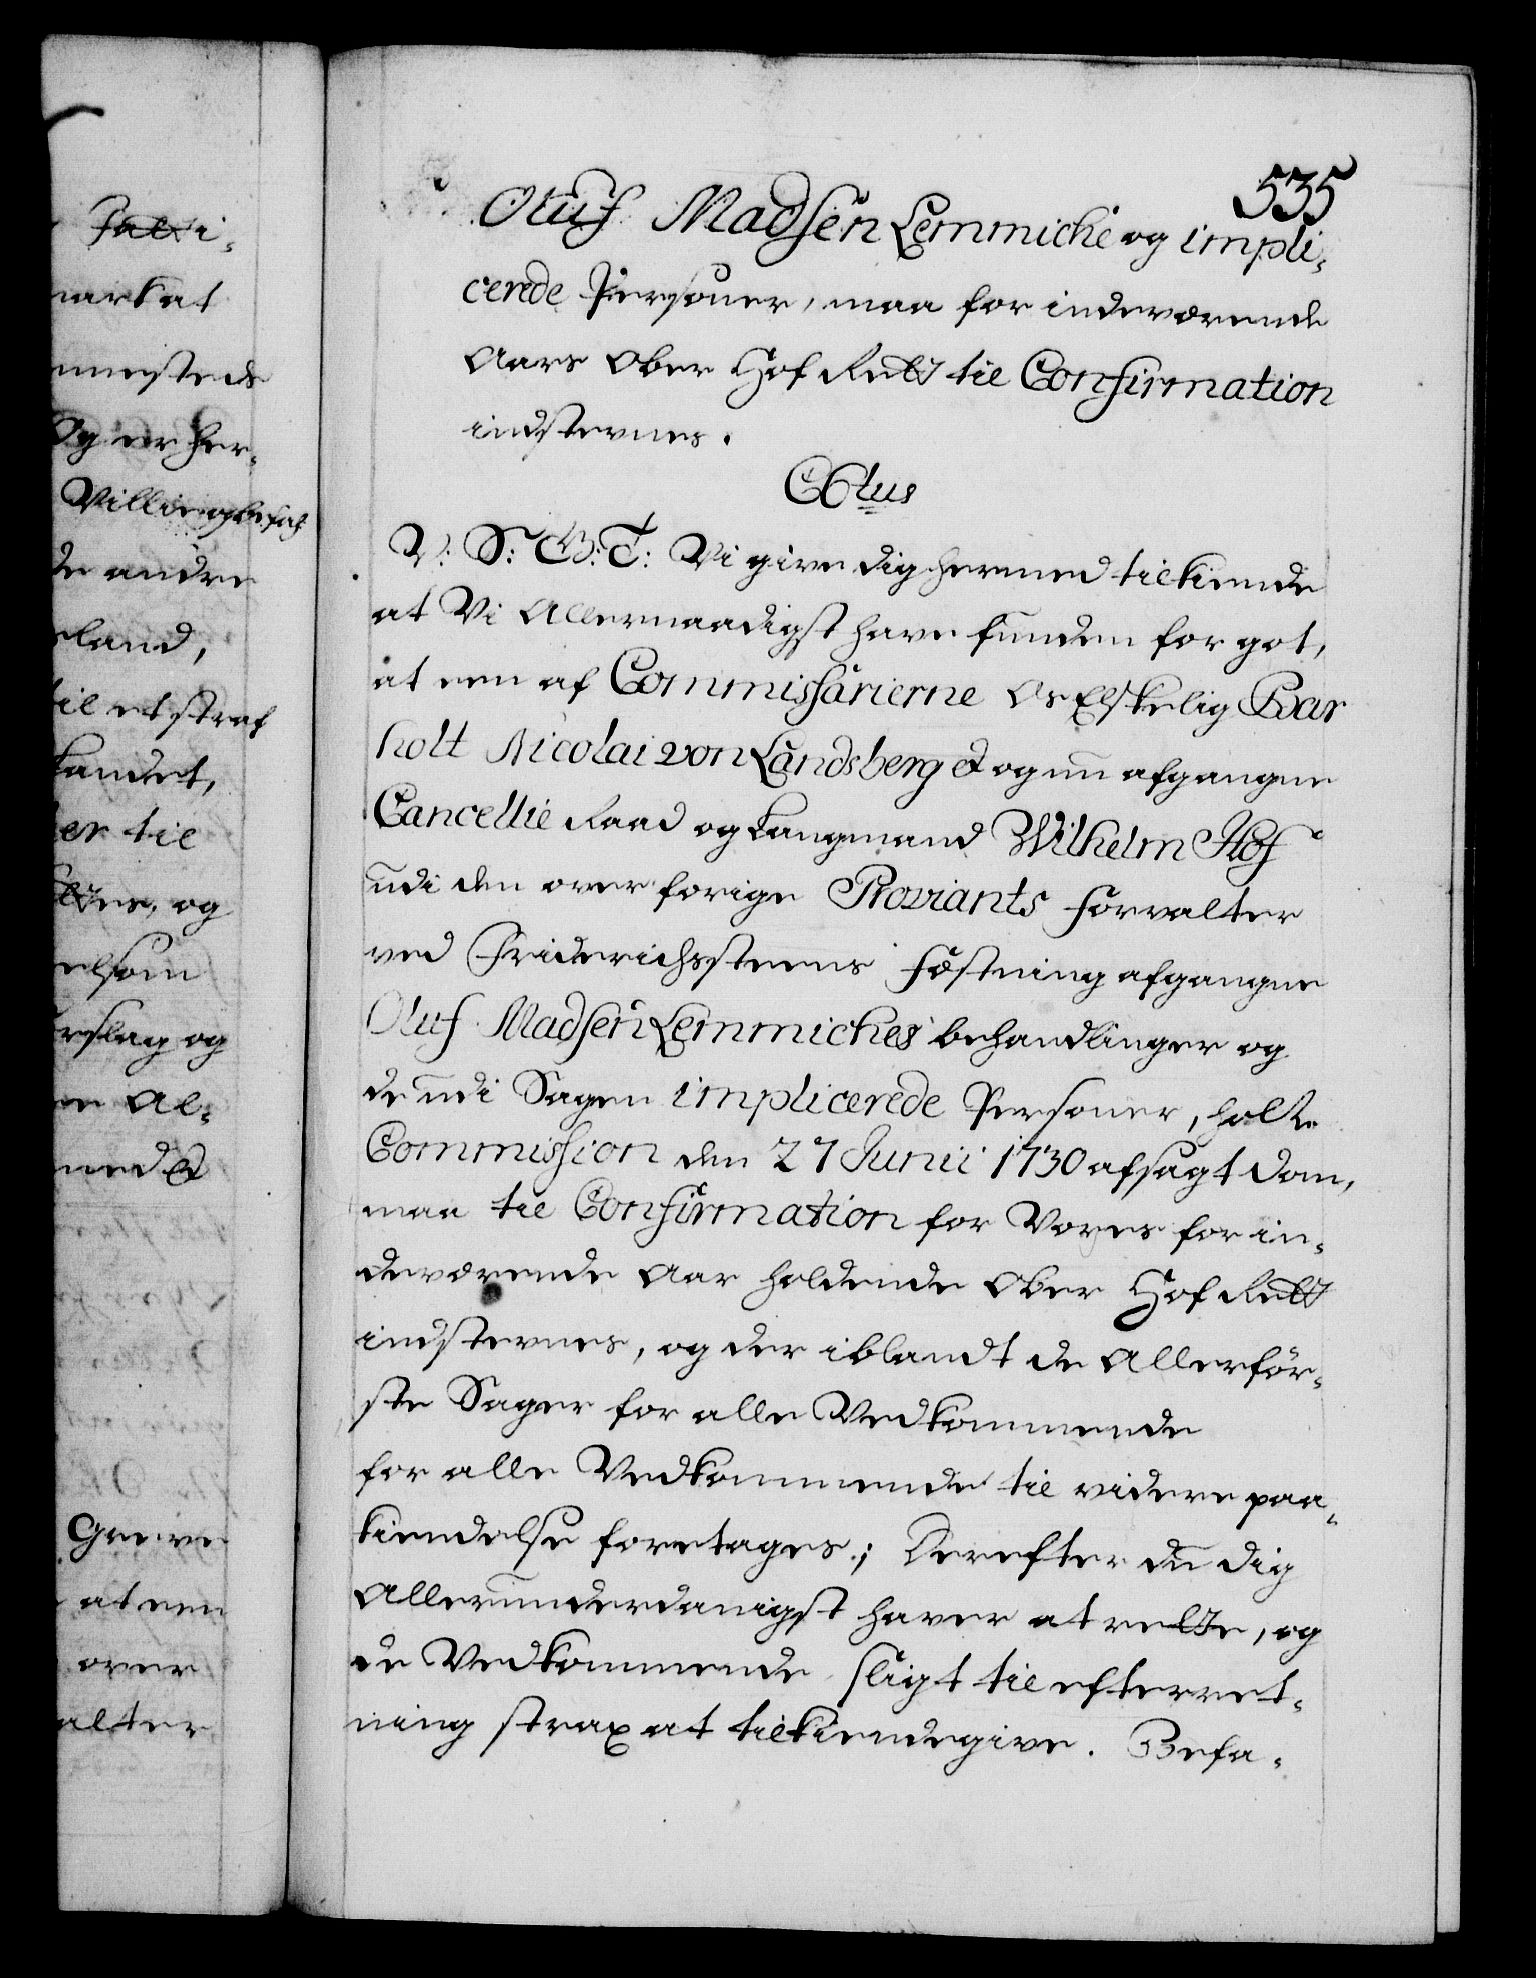 535
Oluf Madsen Lemmiche og impli-
cerede Personer, maa for indeværende
Aars Ober Hof Rett til Confirmation
indstevnes.
C6tus
V: S: G: T: Vi give dig hermed tilkiende
at Vi Allernaadigst have funden for got,
at een af Commissarierne Os Elskelig Bar
holt Nicolai von Landsberg & og nu afgangne
Cancellie Raad og Laugmand Wilhelm Hof
udi den over forige Proviants Forvalter
ved Friderichssteens Fæstning afgangne
Oluf Madsen Lemmiches behandlinger og
de udi Sagen implicerede Personer, holte
Commission den 27 Junii 1730 afsagt Dom,
maa til Confirmation for Vores for in-
deværende Aar holdende Ober Hof Rett
indstevnes, og der iblandt de Allerför-
ste Sager for alle Vedkommende
for alle Vedkommende til videre paa-
kiendelse foretages; Derefter du dig
Allerunderdanigst haver at rette, og
de Vedkommende sligt til efterret-
ning strax at tilkiendegive. Befa-
narkat
de andre
land,
til et straf
landet,
er til
og
elsom
rslag og
Al-
med &
Greve
at een
over
alter